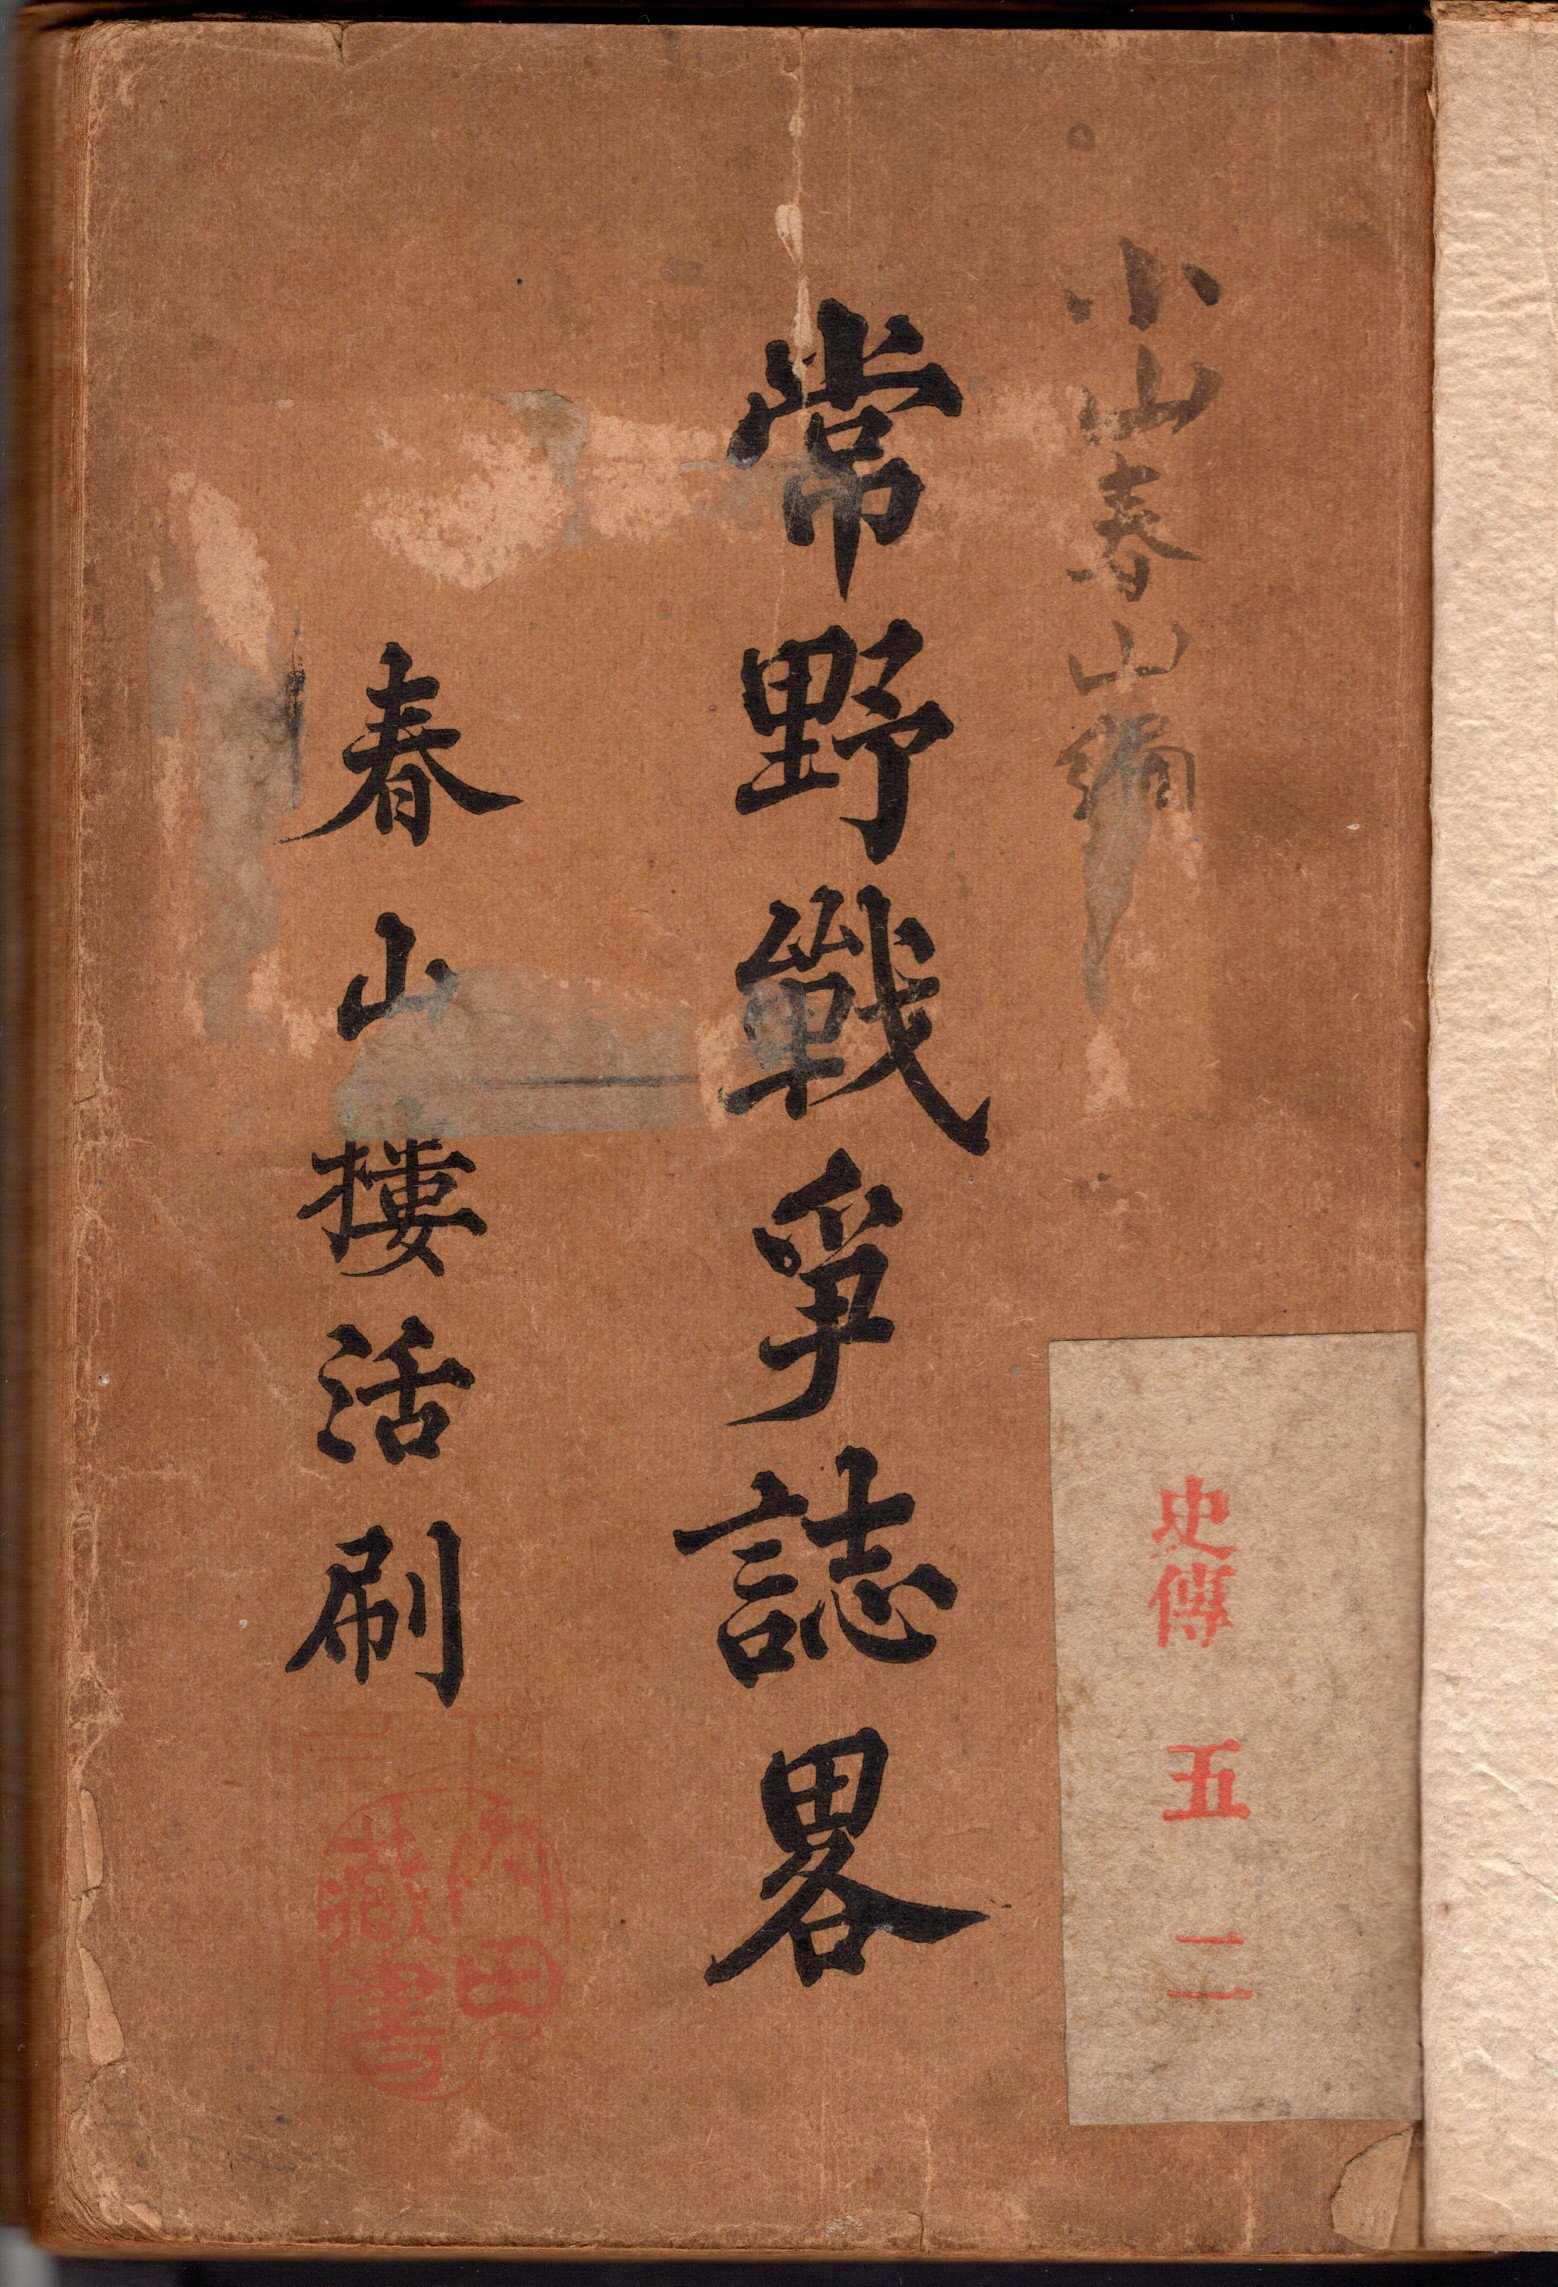 小山春山編
常野戰爭誌畧
春山樓活刷
史傳 五 二
内田
藏書